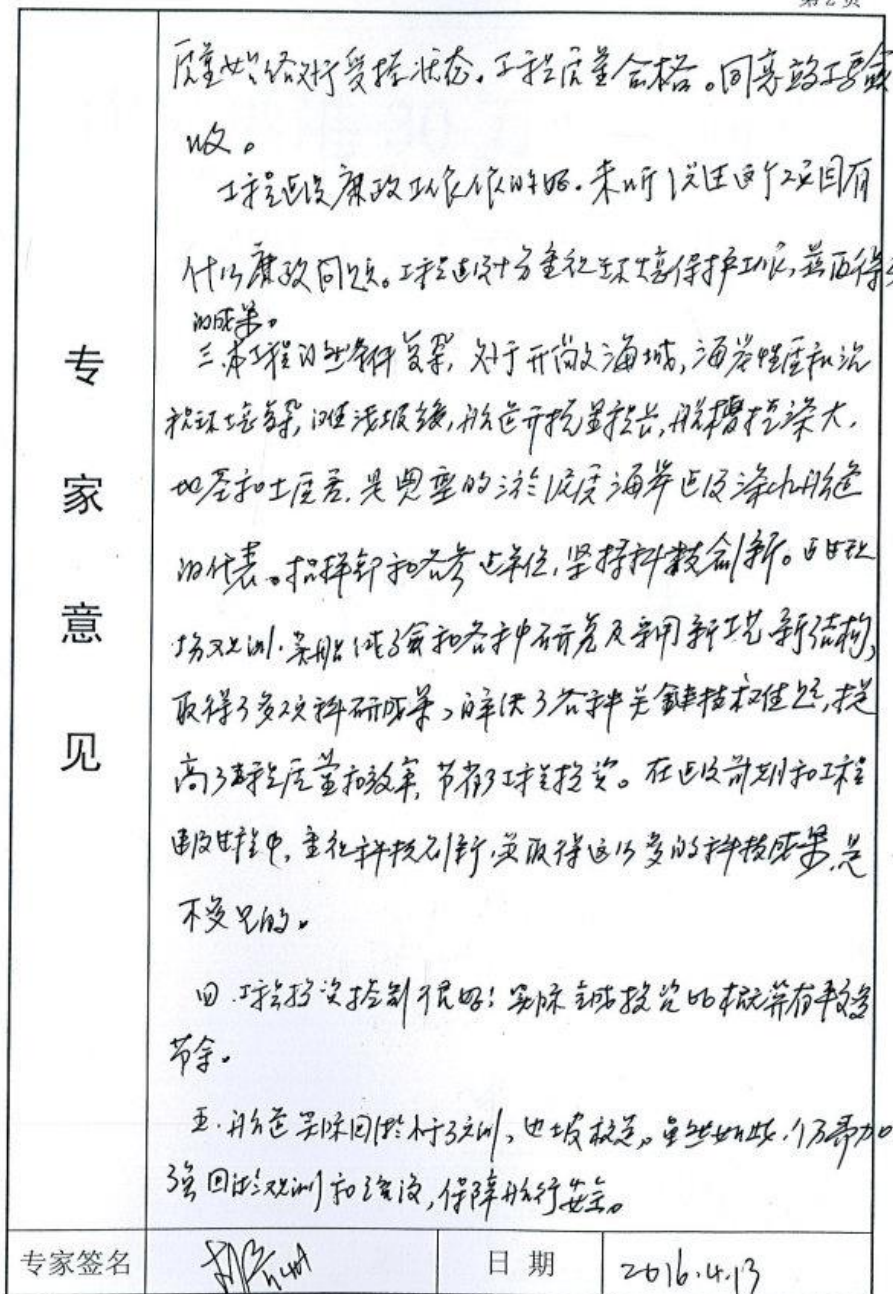 第2页
质量始终处于受控状态。工程质量合格。同意竣工验
收。
工程建设廉政工作作的好。未听说过这个项目有
什么廉政问题。工程建设十分重视环境保护工作,并取得
的成果。
三.本工程自然条件复杂,处于开敞海域,海岸性质和沉
积环境复杂,滩浅坡缓,航道开挖量很长,航槽挖深大,
地基和土质差,是典型的淤泥质海岸建设深水航道
的代表。指挥部和各参建单位,坚持科教创新。通过现
场观测.实船试验和各种研究及采用新工艺新结构,
取得了多项科研成果,解决了各种关键技术难题,提
高了工程质量和效率,节省了工程投资。在建设前期和工程
建设过程中,重视科技创新,并取得这么多的科技成果,是
不多见的。
四.工程投资控制很好!实际完成投资比概算有较多
节余。
五.航道实际回淤小于预测,边坡稳定。虽然如此,仍需加
强回淤观测和维护,保障航行安全。
专家意见
专家签名
日期
2016.4.13